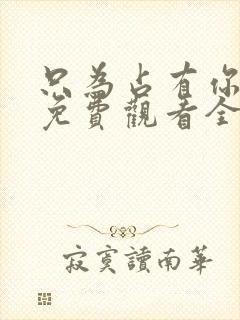 只為占有你
免費觀看全
寂寞讀南華